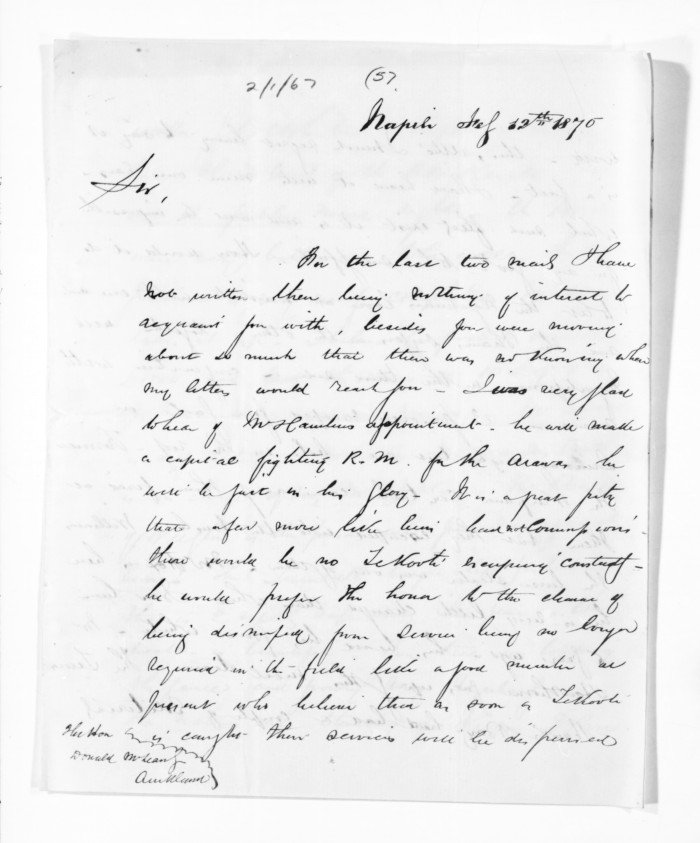 2/1/67 (57
Napier Feby 12th 1870
Sir,
For the last two mails I have
not written there being nothing of interest to
acquaint you with, besides you were moving
about so much that there was no knowing where
my letters would reach you - I was very glad
to hear of Mr Hamlins appointment. he will make
a capital fighting R.M. for the Arawas he
will be just in his glory - It is a great pity
that a few more like him had not Commissions -
there would be no TeKooti escaping constantly -
he would prefer the honor to the chance of
being dismissed from service being no longer
required in the field like a good number at
present who believe that as soon as TeKooti
is caught their services will be dispensed
The Hon
Donald McLean
Auckland